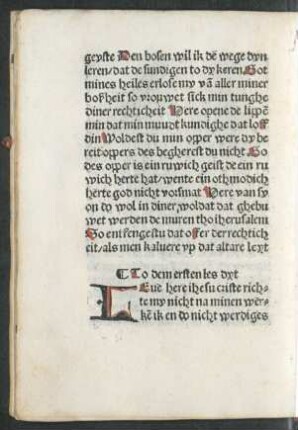 geyste Den bosen wil ik dē wege dyn
leren/dat de sundigen to dy keren Got
mines heiles erlose my vā aller miner
boszheit so vrouwet sick min tunghe
diner rechticheit Here opene de lippē
min dat min mundt kundighe dat loff
din Woldest du min opper were dy be
reit oppers des begherest du nicht Go
des opper is ein ruwich geist de ein ru
wich herte hat/wente ein othmodich
herte god nicht vorsmat Here van sy
on dy wol in diner woldat dat ghebu
wet werden de muren tho iherusalem
So entfengestu dat offer der rechtich
eit/als men kaluere vp dat altare lext
¶ To dem ersten les dyt
LEue here ihesu criste rich-
te my nicht na minen wer-
kē ik en do nicht werdiges